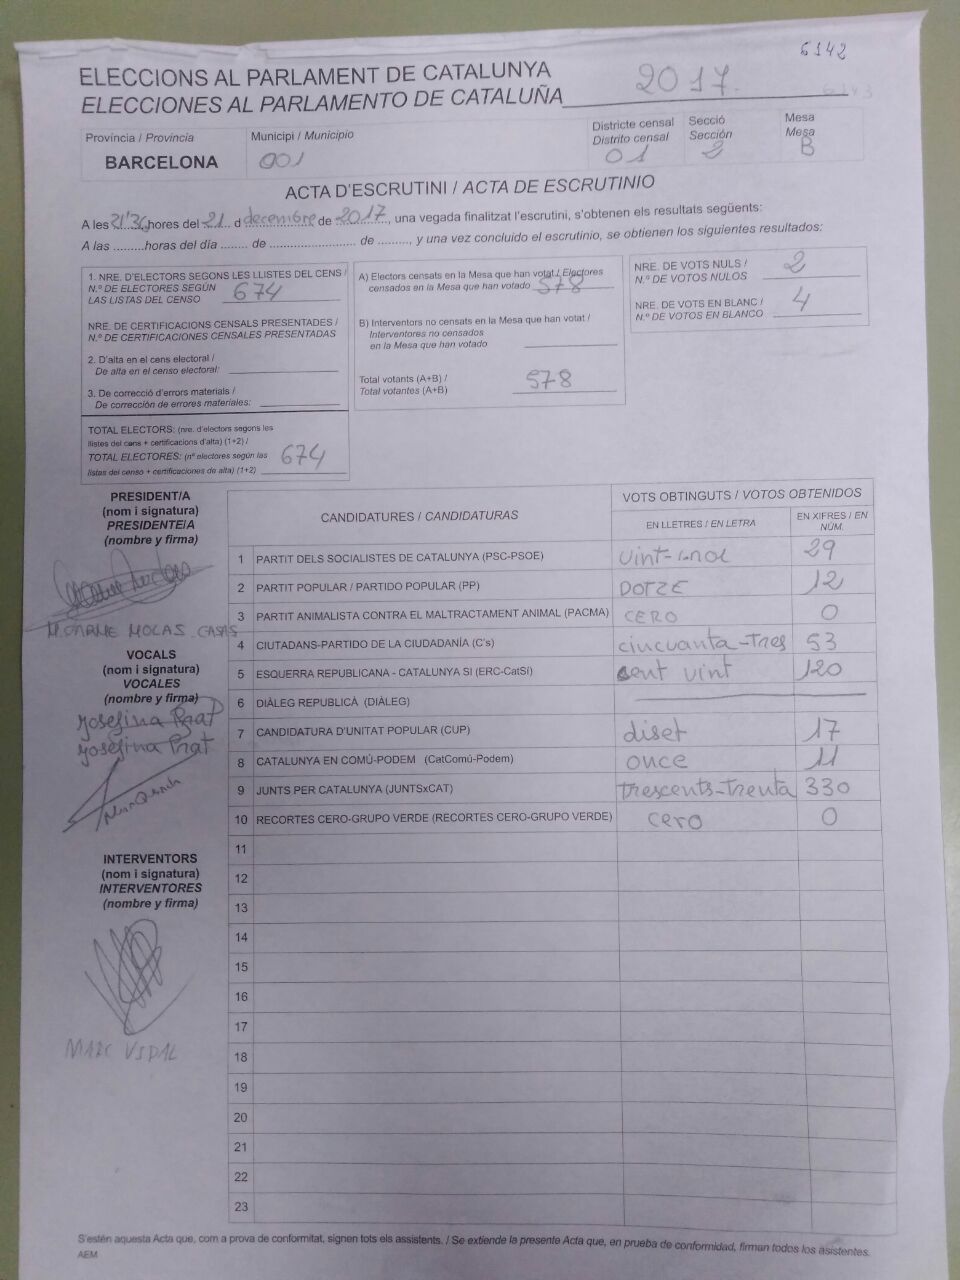 6142
ELECCIONS AL PARLAMENT DE CATALUNYA
ELECCIONES AL PARLAMENTO DE CATALUÑA 2017
Província / Provincia
BARCELONA
Municipi / Municipio
001
Districte censal
Distrito censal
01
Secció
Sección
2
Mesa
Mesa
B
ACTA D'ESCRUTINI / ACTA DE ESCRUTINIO
A les hores del 21 d decembre de 2017, una vegada finalitzat l'escrutini, s'obtenen els resultats següents:
A las .........horas del día ........ de .......................... de .........., y una vez concluido el escrutinio, se obtienen los siguientes resultados:
1. NRE. D'ELECTORS SEGONS LES LLISTES DEL CENS /
N.º DE ELECTORES SEGÚN
LAS LISTAS DEL CENSO 674
NRE. DE CERTIFICACIONS CENSALS PRESENTADES /
N.º DE CERTIFICACIONES CENSALES PRESENTADAS
2. D'alta en el cens electoral /
De alta en el censo electoral:
3. De correcció d'errors materials /
De corrección de errores materiales:
TOTAL ELECTORS: (nre. d'electors segons les
llistes del cens + certificacions d'alta) (1+2) /
TOTAL ELECTORES: (nº electores según las
listas del censo + certificaciones de alta) (1+2) 674
A) Electors censats en la Mesa que han votat / Electores
censados en la Mesa que han votado 578
B) Interventors no censats en la Mesa que han votat /
Interventores no censados
en la Mesa que han votado
Total votants (A+B) /
Total votantes (A+B) 578
NRE. DE VOTS NULS /
N.º DE VOTOS NULOS 2
NRE. DE VOTS EN BLANC /
N.º DE VOTOS EN BLANCO 4
PRESIDENT/A
(nom i signatura)
PRESIDENTE/A
(nombre y firma)
M.CARME MOLAS CASAS
VOCALS
(nom i signatura)
VOCALES
(nombre y firma)
Josefina Prat
Josefina Prat
INTERVENTORS
(nom i signatura)
INTERVENTORES
(nombre y firma)
MARC VIDAL
CANDIDATURES / CANDIDATURAS
VOTS OBTINGUTS / VOTOS OBTENIDOS
EN LLETRES / EN LETRA
EN XIFRES / EN NÚM.
1 PARTIT DELS SOCIALISTES DE CATALUNYA (PSC-PSOE) vint-i-nou 29
2 PARTIT POPULAR / PARTIDO POPULAR (PP) DOTZE 12
3 PARTIT ANIMALISTA CONTRA EL MALTRACTAMENT ANIMAL (PACMA) CERO 0
4 CIUTADANS-PARTIDO DE LA CIUDADANÍA (C's) cincuanta-tres 53
5 ESQUERRA REPUBLICANA - CATALUNYA SI (ERC-CatSí) cent vint 120
6 DIÀLEG REPUBLICÀ (DIÀLEG)
7 CANDIDATURA D'UNITAT POPULAR (CUP) diset 17
8 CATALUNYA EN COMÚ-PODEM (CatComú-Podem) once 11
9 JUNTS PER CATALUNYA (JUNTSxCAT) trescents-trenta 330
10 RECORTES CERO-GRUPO VERDE (RECORTES CERO-GRUPO VERDE) cero 0
11
12
13
14
15
16
17
18
19
20
21
22
23
S'estén aquesta Acta que, com a prova de conformitat, signen tots els assistents. / Se extiende la presente Acta que, en prueba de conformidad, firman todos los asistentes.
AEM